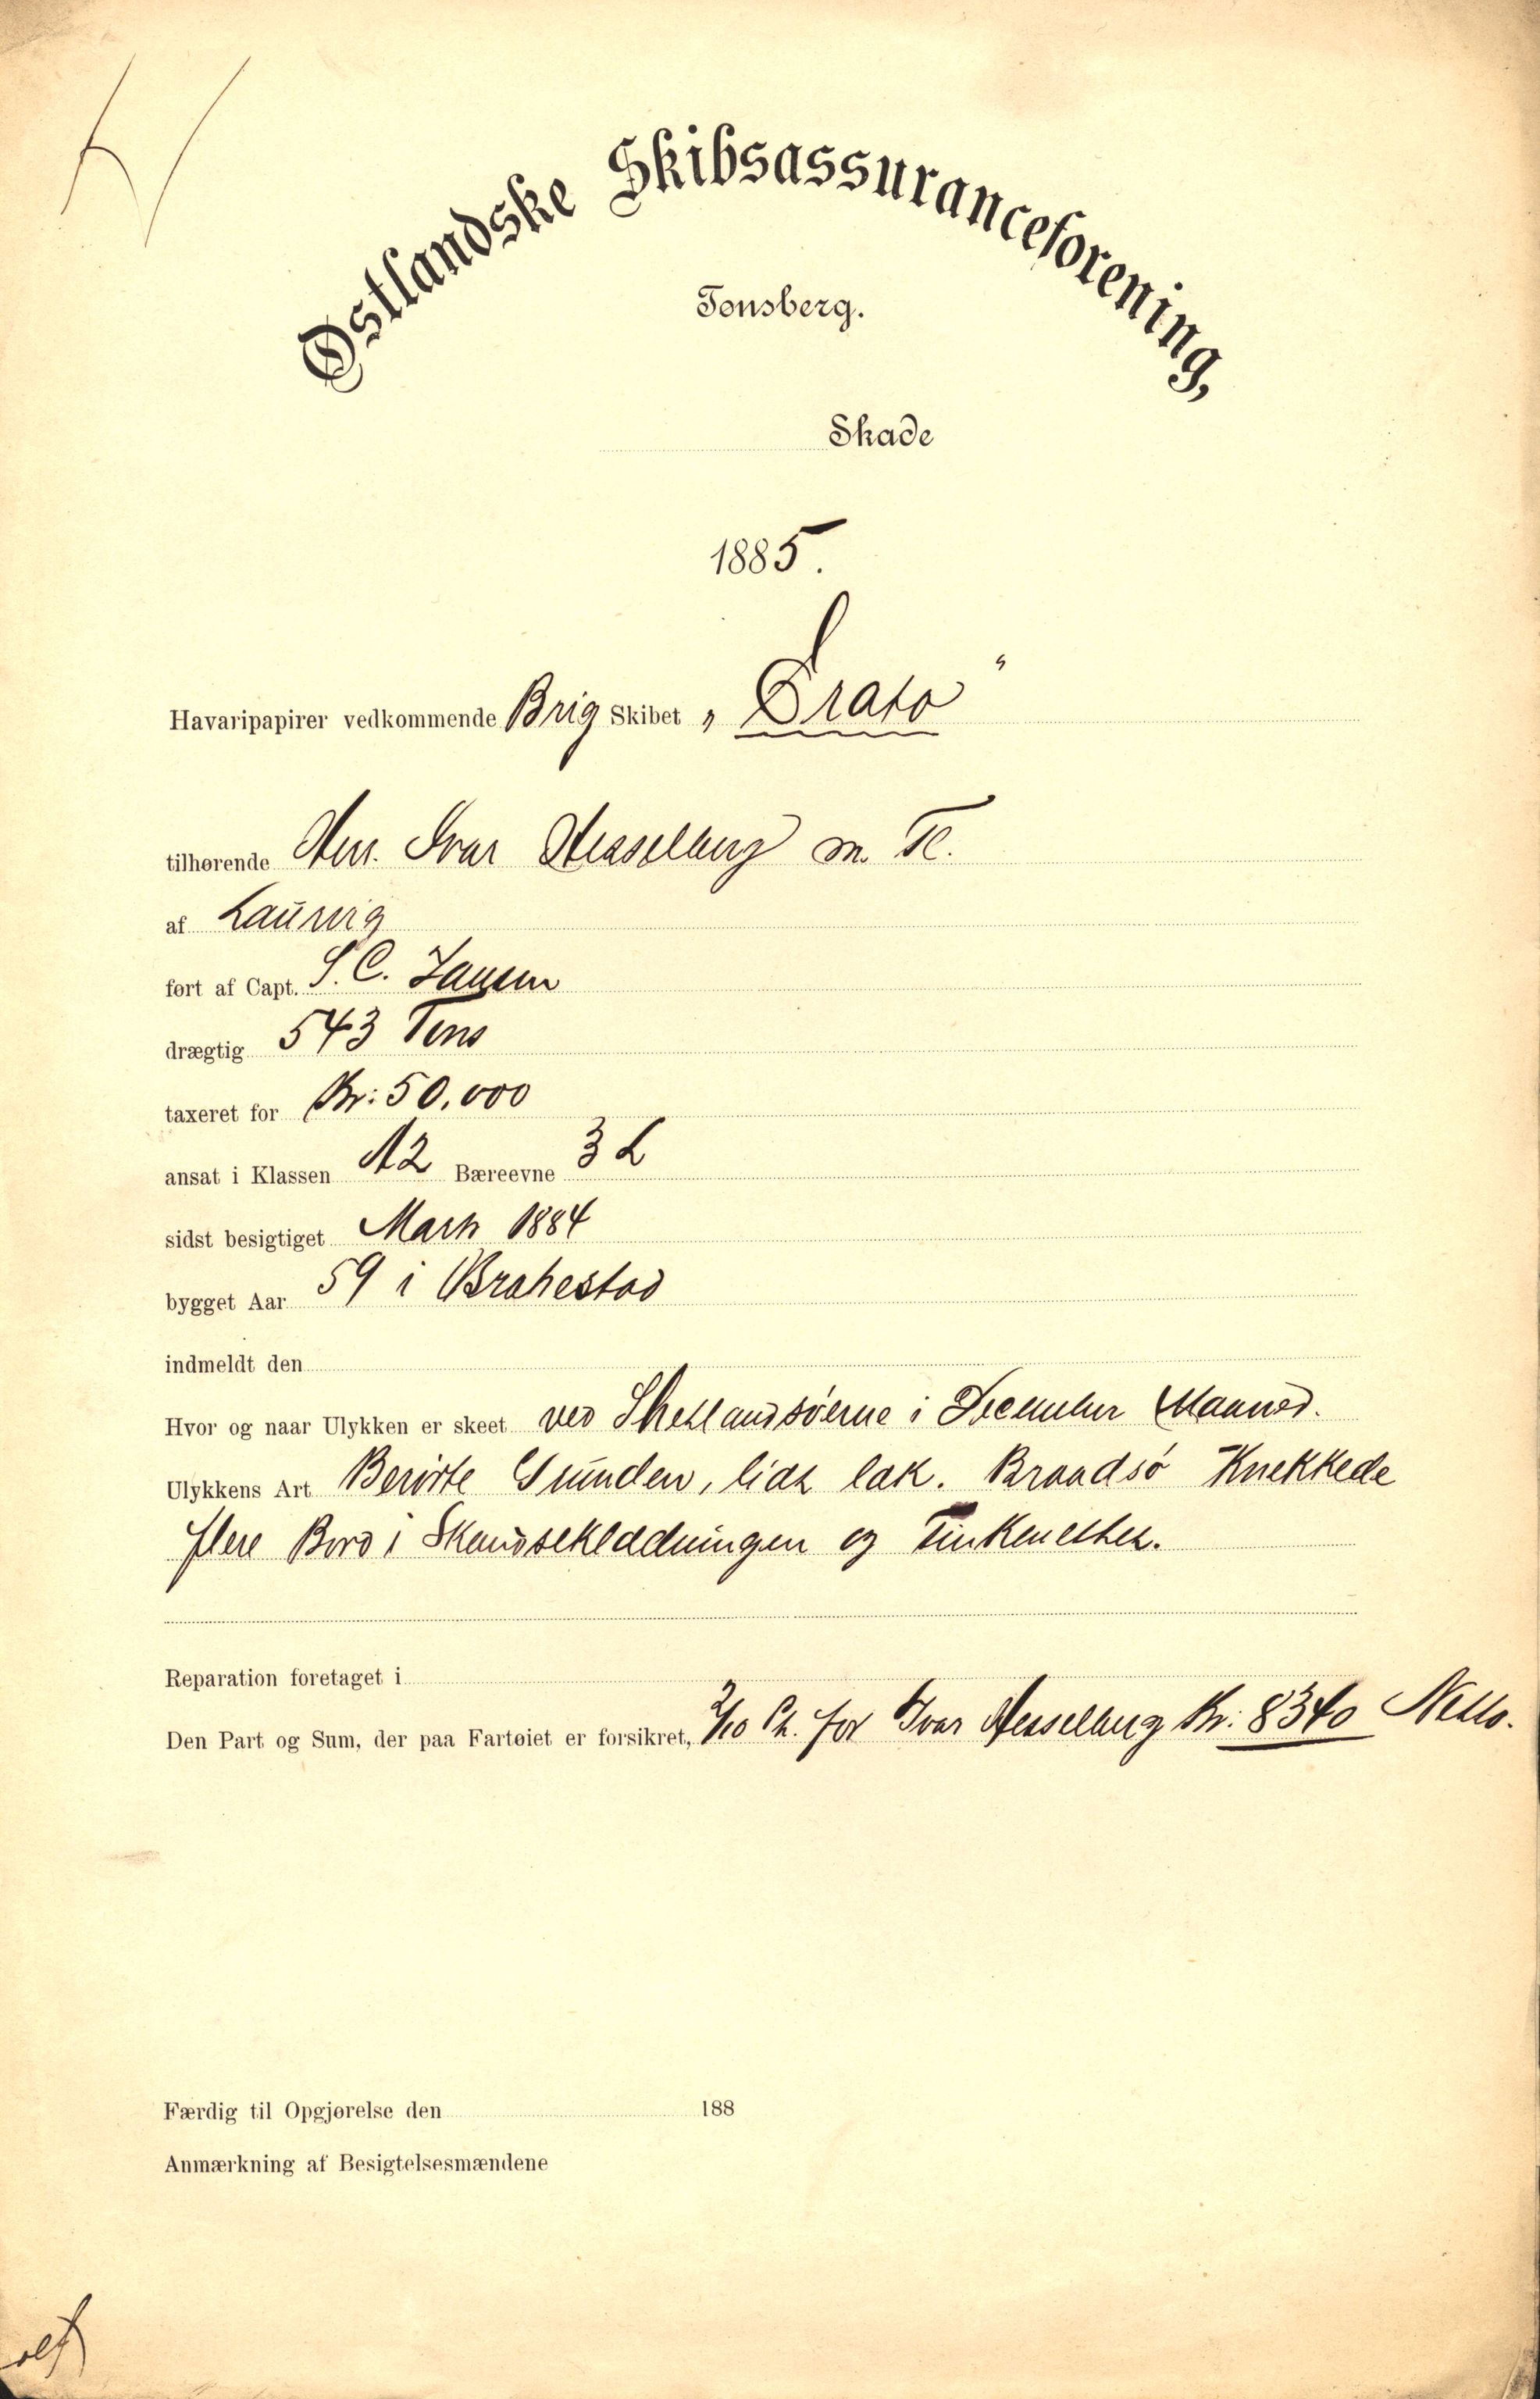 Østlandske Skibsassuranceforening,
Tønsberg.
Skade
1885.
Havaripapirer vedkommende Brig Skibet „Erato“
tilhørende Herr. Ivar Hesselberg m. Fl.
af Laurvig
ført af Capt. S. C. Jansen
drægtig 543 Tons
taxeret for Kr: 50,000
ansat i Klassen A2 Bæreevne 3 L
sidst besigtiget Marts 1884
bygget Aar 59 i Brahestad
indmeldt den
Hvor og naar Ulykken er skeet ved Shetlandsøerne i December Maaned.
Ulykkens Art Berørte Grunden, lidt læk. Braadsø Knækkede
flere Bord i Skandseklædningen og
Reparation foretaget i
Den Part og Sum, der paa Fartøiet er forsikret, 2/10 P. for Ivar Hesselberg Kr: 8340 Netto.
Færdig til Opgjørelse den 188
Anmærkning af Besigtelsesmændene